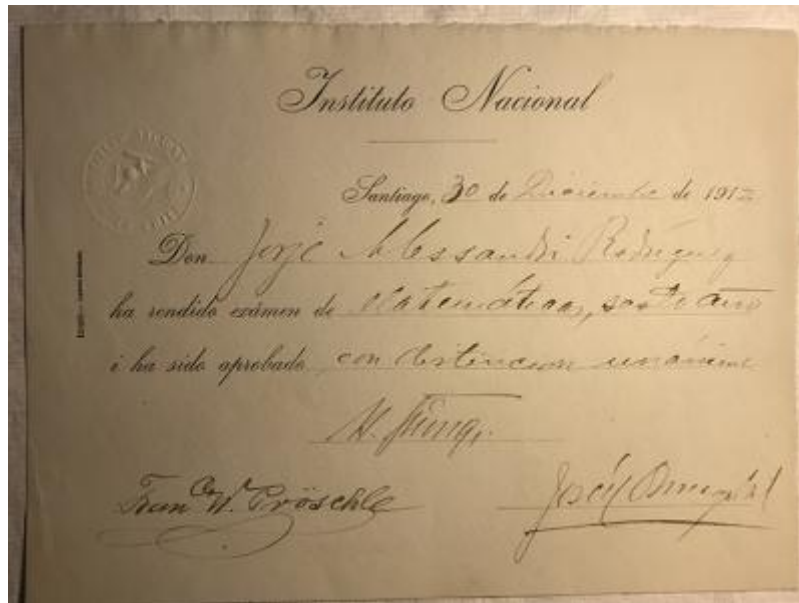 Instituto Nacional
Santiago, 30 de Diciembre de 191
Don Jorje Alessandri Rodríguez
ha rendido exámen de Matemáticas, sesto año
i ha sido aprobado con distincion unánime
Franco W. Pröschle